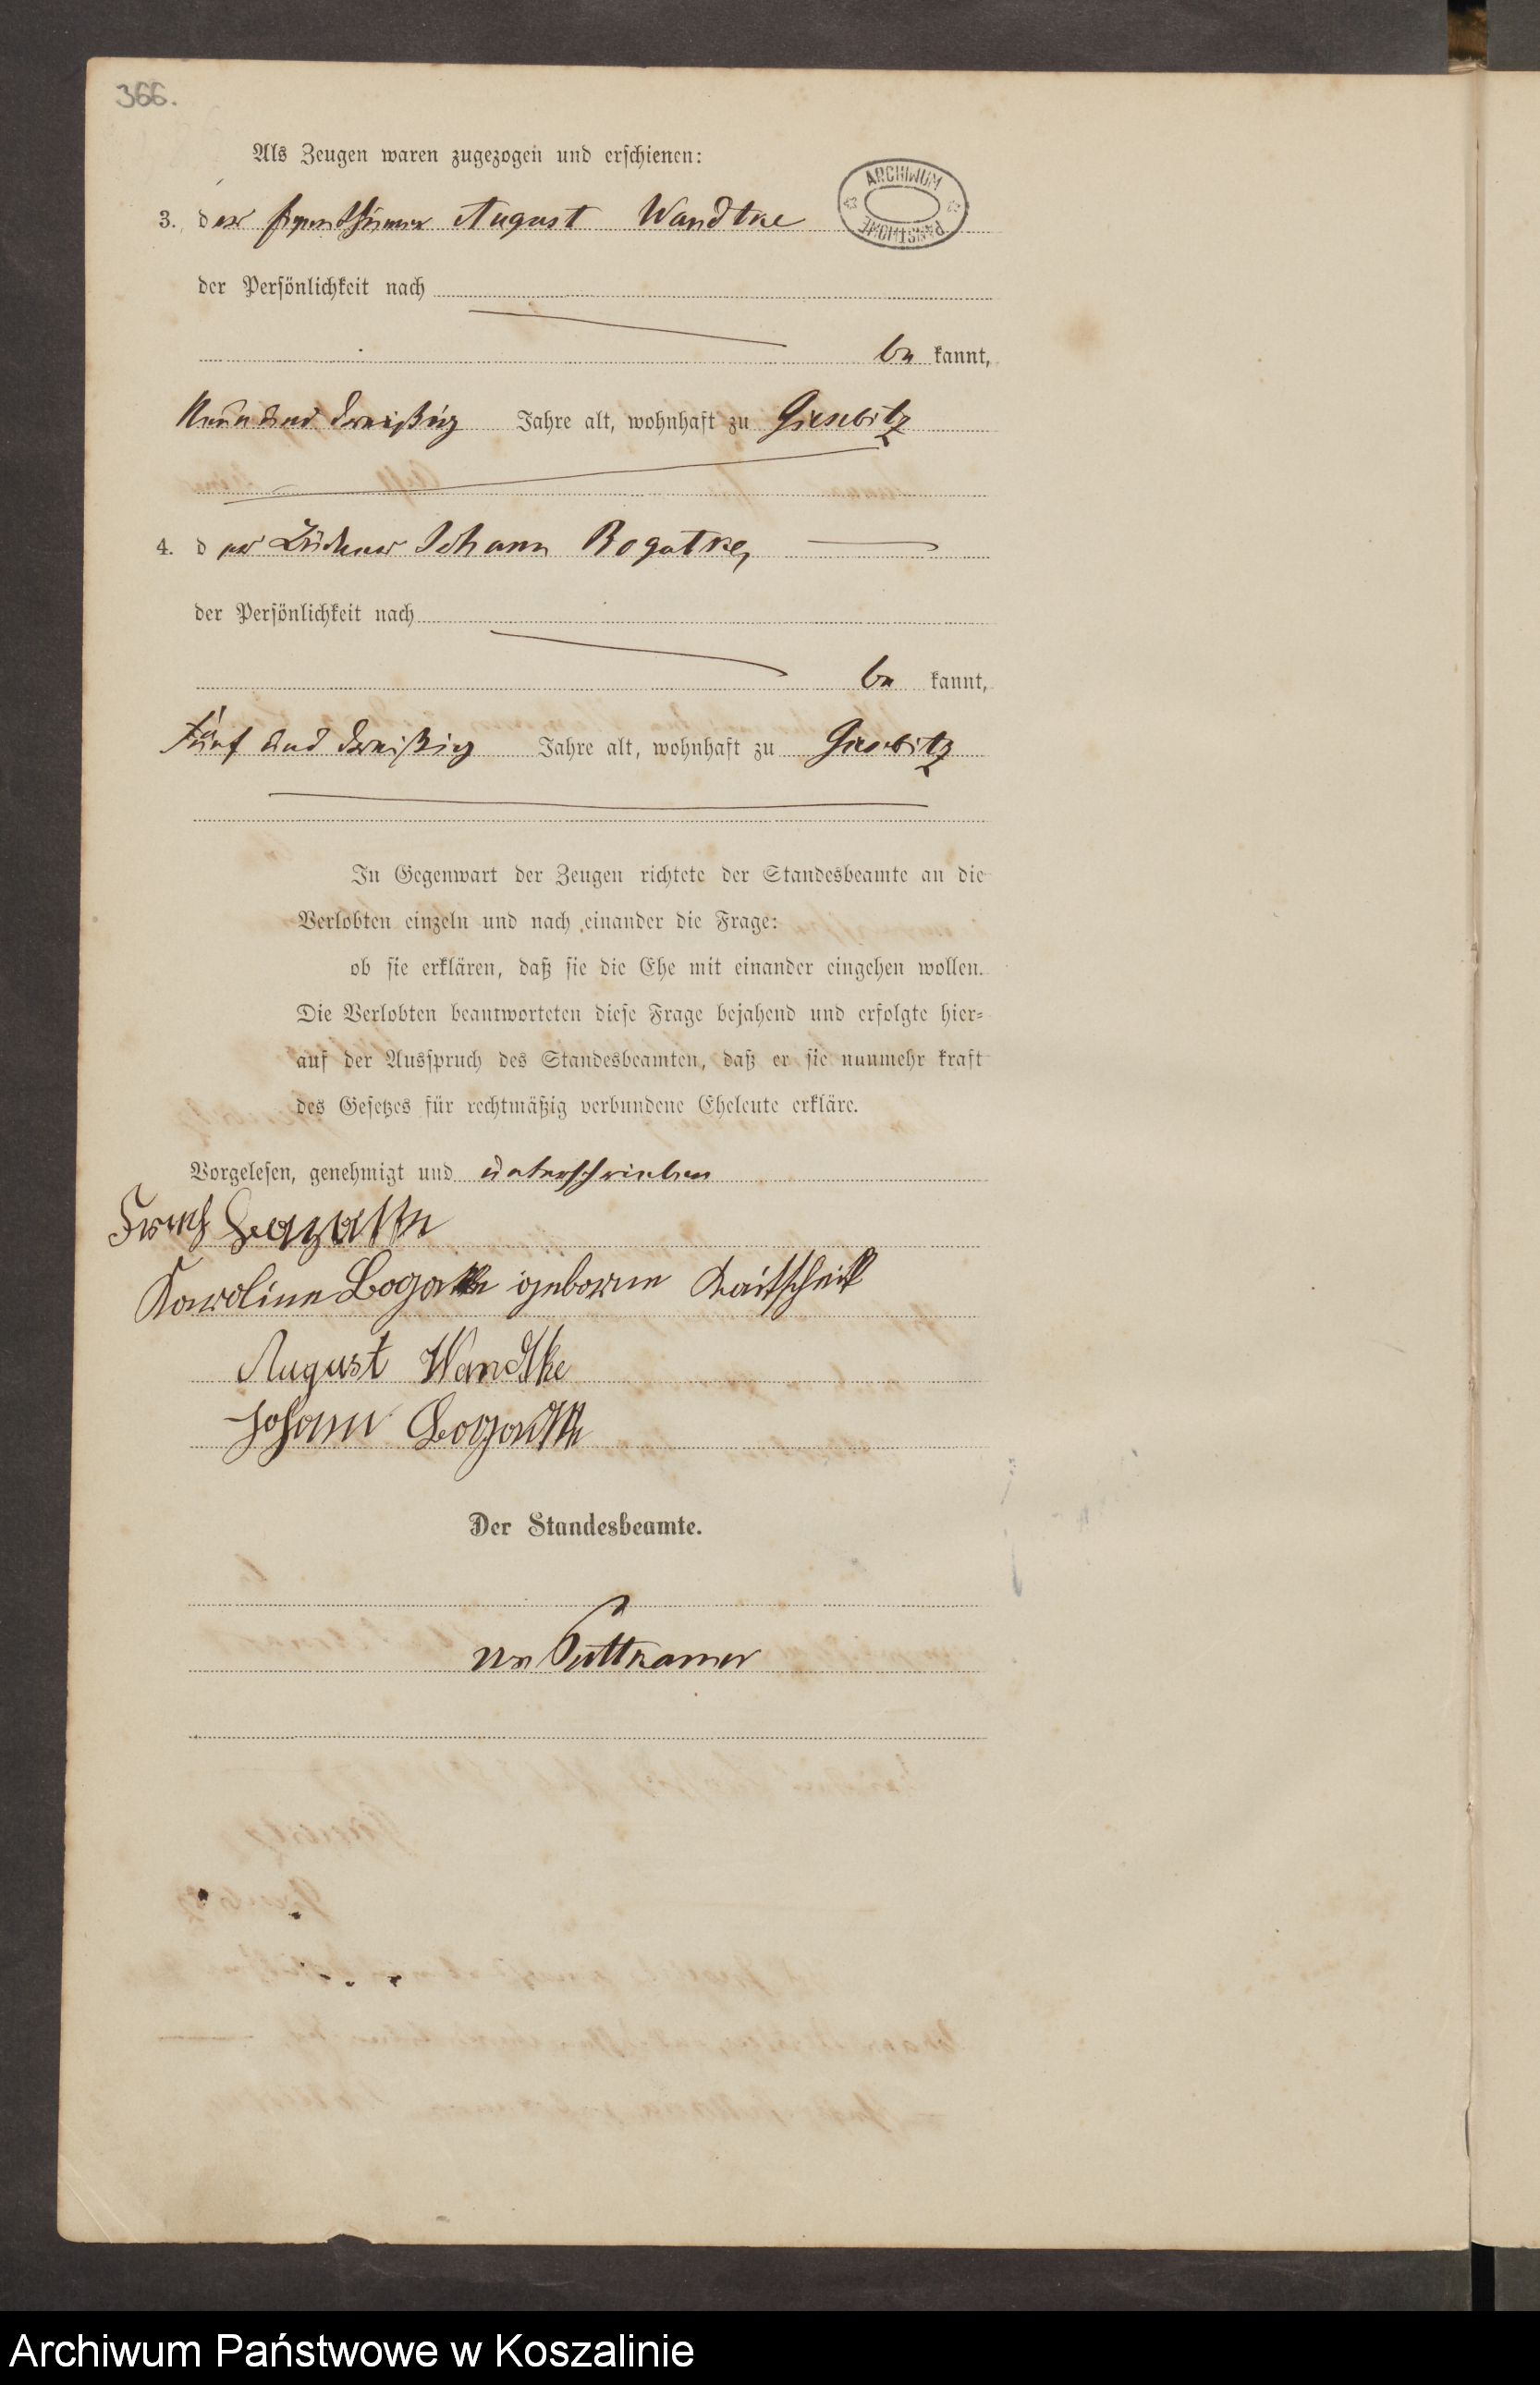 366.
Als Zeugen waren zugezogen und erschienen:
ARCHIWUM PAŃSTWOWE
3. der Eigenthümer August Wandtke
der Persönlichkeit nach
be kannt,
Neun und dreißig Jahre alt, wohnhaft zu Giesebitz
4. der Büdner Johann Bogatke,
der Persönlichkeit nach
be kannt,
Fünf und dreißig Jahre alt, wohnhaft zu Giesebitz
In Gegenwart der Zeugen richtete der Standesbeamte an die
Verlobten einzeln und nach einander die Frage:
ob sie erklären, daß sie die Ehe mit einander eingehen wollen.
Die Verlobten beantworteten diese Frage bejahend und erfolgte hier=
auf der Ausspruch des Standesbeamten, daß er sie nunmehr kraft
des Gesetzes für rechtmäßig verbundene Eheleute erkläre.
Vorgelesen, genehmigt und unterschrieben
Bogatke
Karoline Bogatke geborne
August Wandtke
Johann Bogatke
Der Standesbeamte.
von Puttkamer
Archiwum Państwowe w Koszalinie